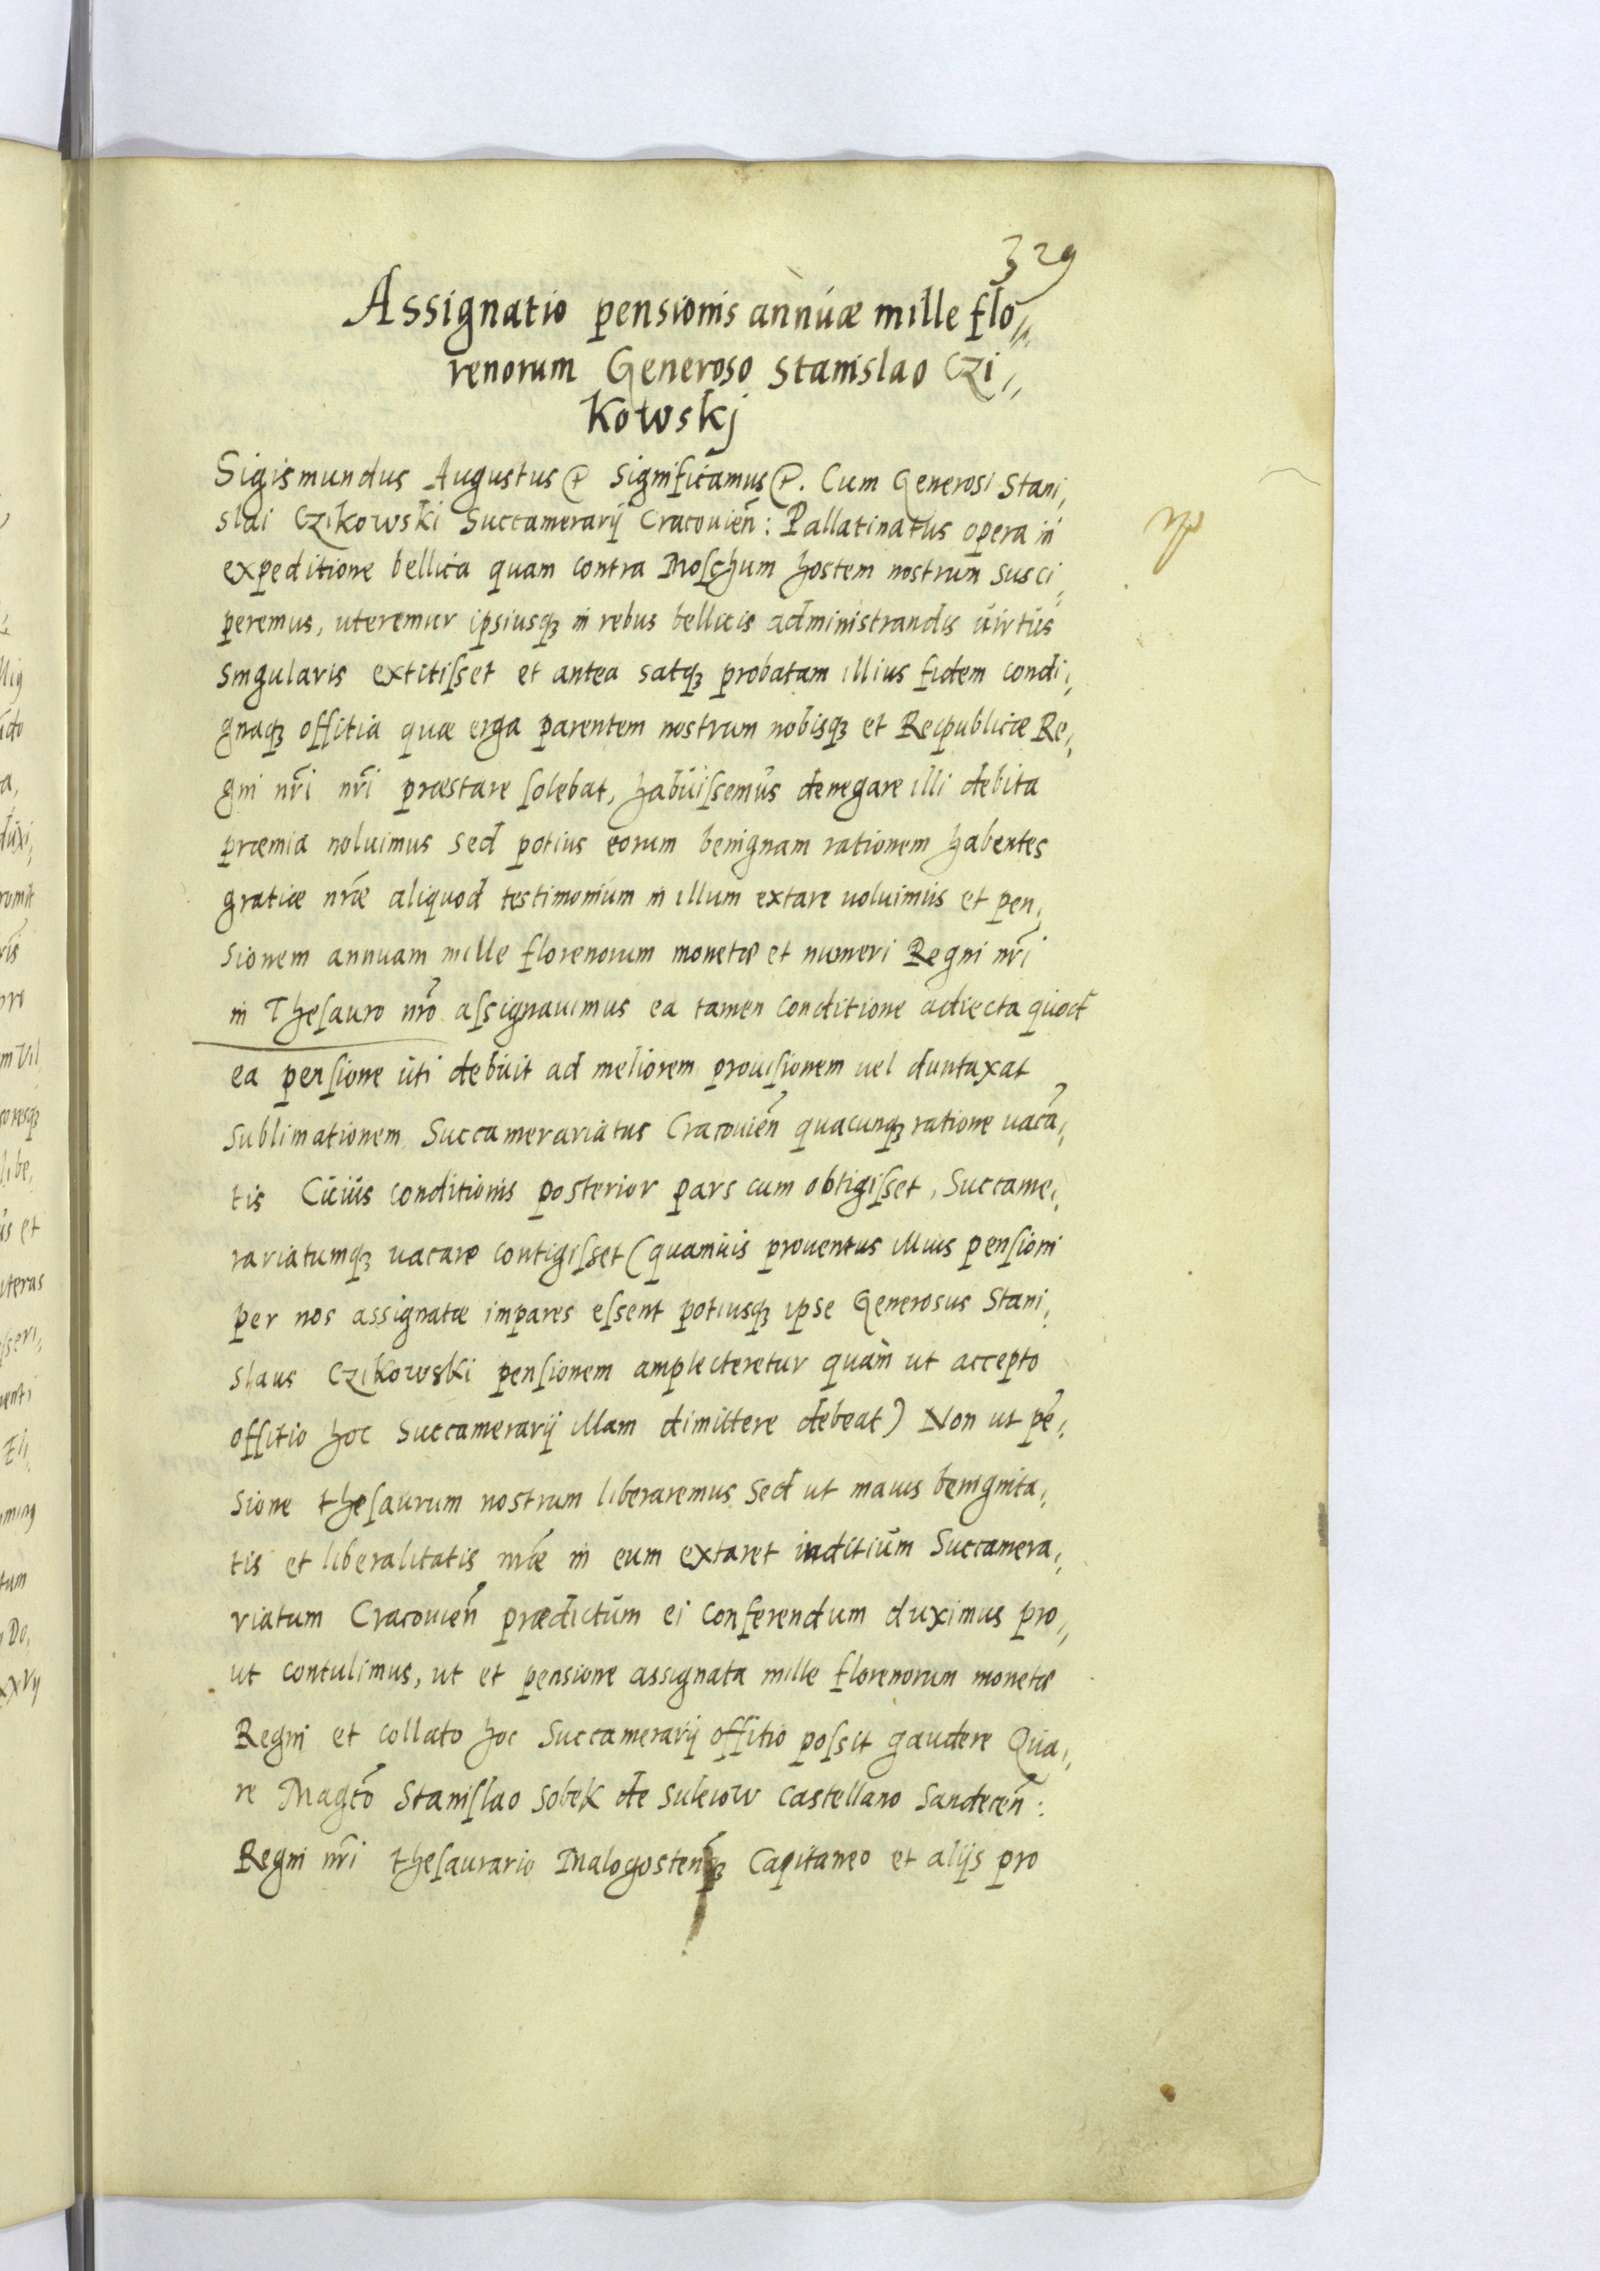 329
Assignatio pensionis annuæ mille flo„
renorum Generoso Stanislao Czi„
Kowskj
Sigismundus Augustus &c Significamus &c. Cum Generosi Stani„
slai Czikowski Succamerarij Cracouień: Pallatinatus opera in
expeditione bellica quam contra Moschum hostem nostrum susci„
peremus, uteremur ipsiusq3 in rebus bellicis administrandis uirtus
singularis extitisset et antea satq3 probatam illius fidem condi„
gnaq3 offitia quæ erga parentem nostrum nobisq3 et Reipublicæ Re„
gni nr̃i nr̃i præstare solebat, habuissemus denegare illi debita
præmia noluimus sed potius eorum benignam rationem habentes
gratiæ nr̃æ aliquod testimonium in illum extare uoluimus et pen„
sionem annuam mille florenorum monetæ et numeri Regni nr̃i
in Thesauro nr̃o assignauimus ea tamen conditione adiecta quod
ea pensione uti debuit ad meliorem prouisionem uel duntaxat
sublimationem Succamerariatus Cracouień quacunq3 ratione uacã„
tis Cuius conditionis posterior pars cum obtigisset, Succame„
rariatumq3 uacare contigisset (quamuis prouentus illius pensioni
per nos assignatæ impares essent potiusq3 ipse Generosus Stani„
slaus Czikowski pensionem amplecteretur quam ut accepto
offitio hoc Succamerarij illam dimittere debeat) Non ut pẽ„
sione thesaurum nostrum liberaremus Sed ut maius benignita„
tis et liberalitatis nr̃æ in eum extaret inditium Succamera„
riatum Cracouień prædictum ei conferendum duximus pro„
ut contulimus, ut et pensione assignata mille florenorum monetæ
Regni et collato hoc Succamerarij offitio possit gaudere Qua„
re Magc̃o Stanislao Sobek de Suleiow Castellano Sandeceń:
Regni nr̃i thesaurario Malogosteńq3 Capitaneo et alijs pro